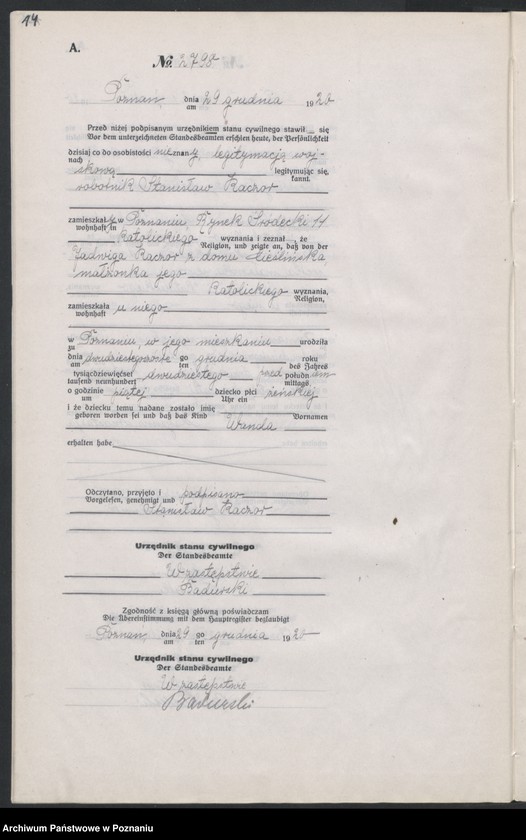 14.
A.
No. 2798
Poznań, dnia 29 grudnia 1920
am
Przed niżej podpisanym urzędnikiem stanu cywilnego stawił się
Vor dem unterzeichneten Standesbeamten erschien heute, der Persönlichkeit
dzisiaj co do osobistości nieznany, legitymacją woj-
nach
skową legitymując się,
kannt.
robotnik Stanisław Kaczor
zamieszkały w Poznaniu, Rynek Śródecki 14
wohnhaft in
katolickiego wyznania i zeznał, że
Religion, und zeigte an, daß von der
Jadwiga Kaczor z domu Cieślińska
małżonka jego
katolickiego wyznania,
Religion,
zamieszkała u niego
wohnhaft
w Poznaniu, w jego mieszkaniu urodziła
zu
dnia go grudnia roku
am ten des Jahres
tysiącdziewięćset dwudziestego przed południem
tausend neunhundert mittags
o godzinie piątej dziecko płci żeńskiej
um Uhr ein
i że dziecku temu nadane zostało imię
geboren worden sei und daß das Kind Vornamen
Wanda
erhalten habe
Odczytano, przyjęto i podpisano
Vorgelesen, genehmigt und
Stanisław Kaczor
Urzędnik stanu cywilnego
Der Standesbeamte
W zastępstwie
Zgodność z księgą główną poświadczam
Die Übereinstimmung mit dem Hauptregister beglaubigt
Poznań, dnia 29 go grudnia 1920
am ten
Urzędnik stanu cywilnego
Der Standesbeamte
W zastępstwie
Archiwum Państwowe w Poznaniu